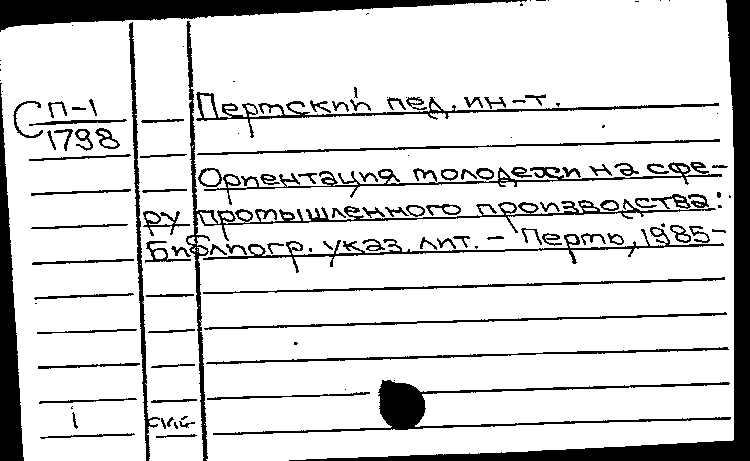 С П-1
1798
Пермский пед. ин-т.
Ориентация молодежи на сфе-
ру промышленного производства:
Библиогр. указ. лит. - Пермь, 1985-
1